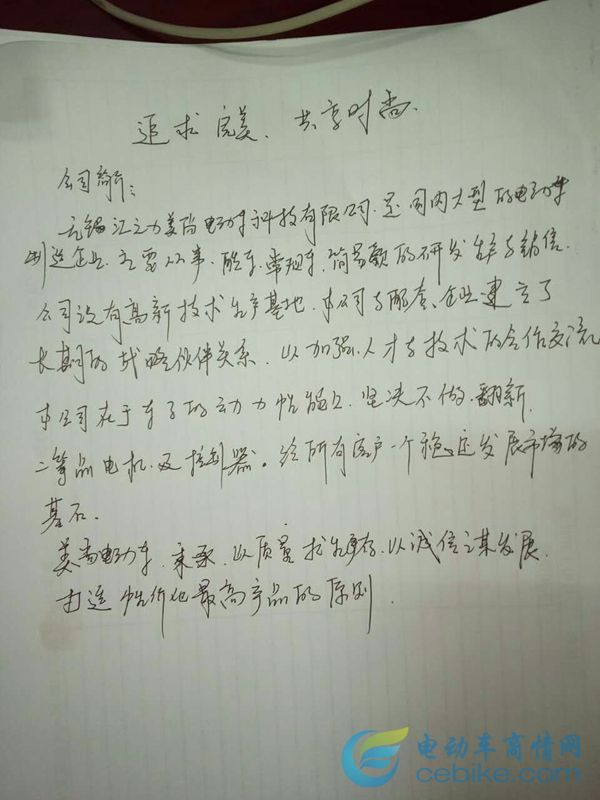 追求完美、共享时尚.
公司简介:
无锡江之力美尚电动车科技有限公司.是国内大型的电动车
制造企业.主要从事.酷车.常规车.简易款的研发生产与销售.
公司设有高新技术生产基地.本公司与配套、企业建立了
长期的战略伙伴关系.以加强.人才与技术的合作交流
本公司在于车子的动力性能上.坚决不做.翻新.
二等品电机.及控制器。给所有客户一个稳定发展市场的
基石.
美尚电动车.秉承.以质量求生存.以诚信之谋发展.
打造性价比最高产品的原则.
电动车商情网
cebike.com